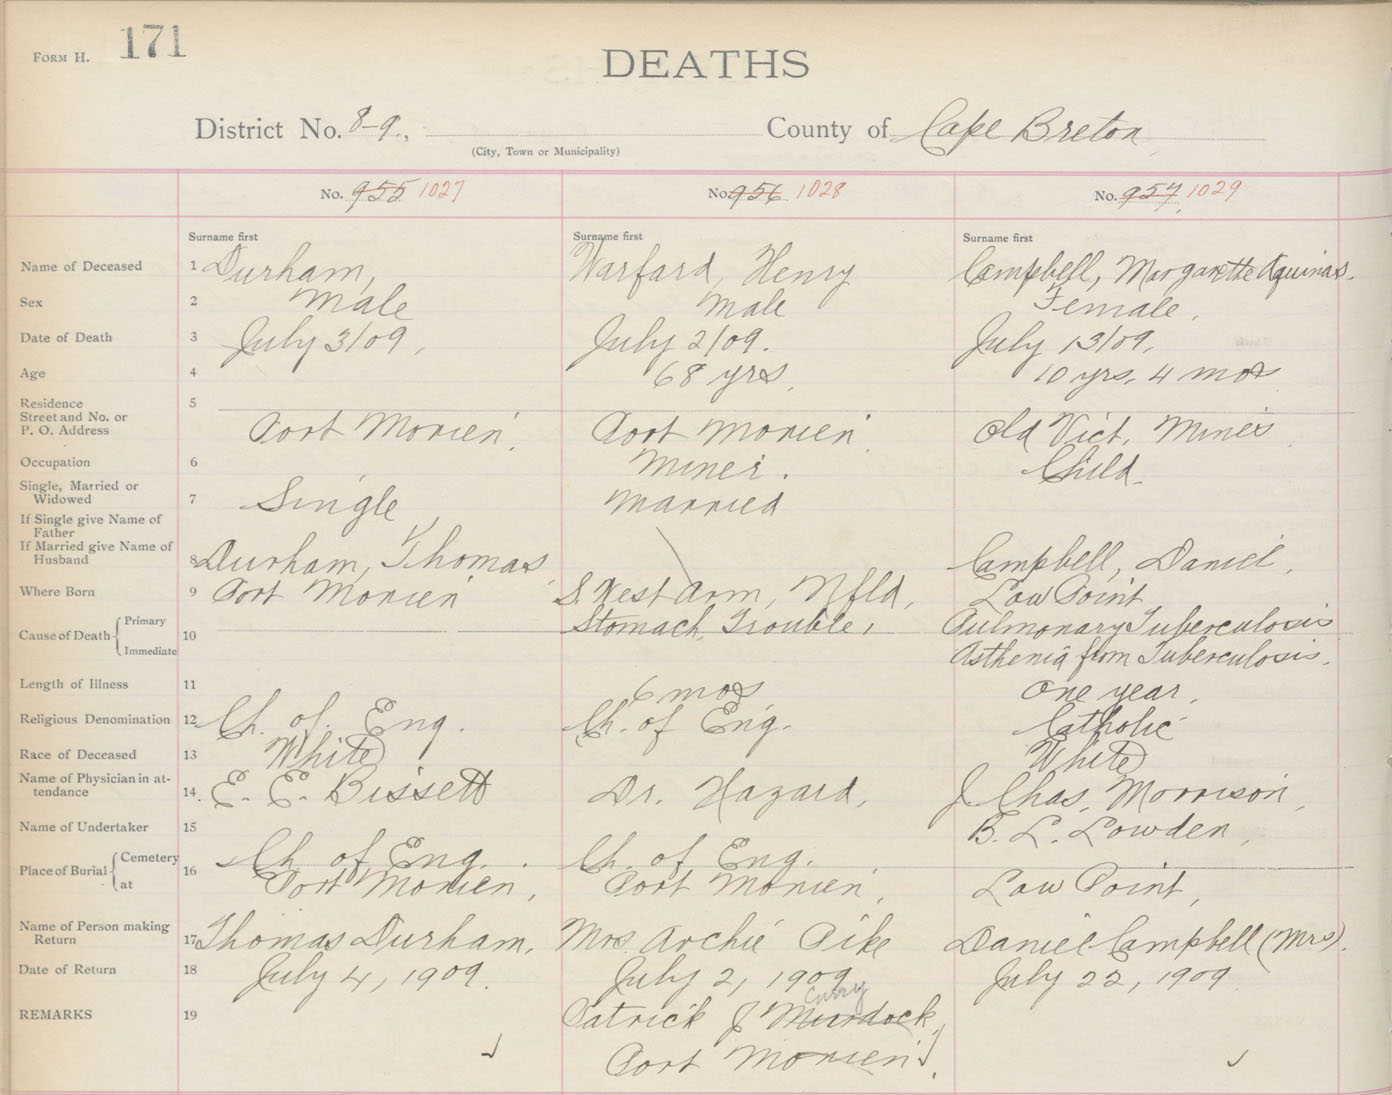 FORM H. 171
DEATHS
District No. 8-9., County of Cape Breton
(City, Town or Municipality)
No. 955 1027 No. 956 1028 No. 957 1029
Surname first Surname first Surname first
Name of Deceased 1 Durham, Warfard, Henry Campbell, Margarette Aquinas.
Sex 2 Male Male Female.
Date of Death 3 July 3/09, July 2/09. July 13/09.
Age 4 68 yrs. 10 yrs. 4 mos
Residence 5
Street and No. or
P. O. Address Port Morien. Port Morien Old Vict. Mines
Occupation 6 Miner. Child.
Single, Married or
Widowed 7 Single, Married
If Single give Name of
Father
If Married give Name of
Husband 8 Durham, Thomas Campbell, Daniel.
Where Born 9 Port Morien S. West Arm, Nfld, Low Point
Cause of Death Primary 10 Stomach Trouble, Pulmonary Tuberculosis
Immediate Asthenia from Tuberculosis.
Length of Illness 11 6 mos One year,
Religious Denomination 12 Ch. of Eng. Ch. of Eng. Catholic
Race of Deceased 13 White White
Name of Physician in at-
tendance 14 E. E. Bissett Dr. Hazard, J. Chas. Morrison,
Name of Undertaker 15 B. L. Lowden,
Place of Burial Cemetery 16 Ch. of Eng. Ch. of Eng.
at Port Morien, Port Morien, Low Point,
Name of Person making
Return 17 Thomas Durham, Mrs. Archie Pike Daniel Campbell (Mrs).
Date of Return 18 July 4, 1909. July 2, 1909 July 22, 1909
Curry
REMARKS 19 Patrick J. Murdock,
Port Morien.